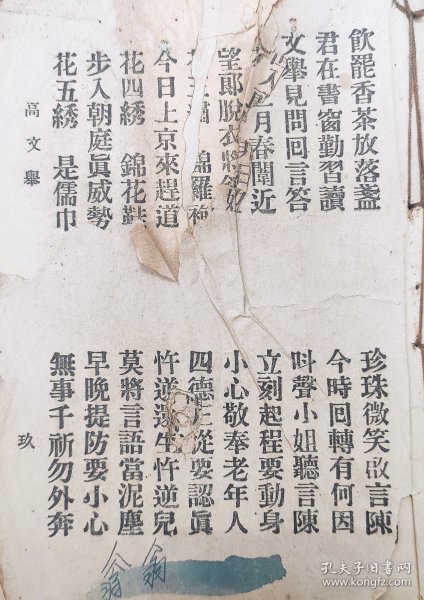 飲罷香茶放落盞
珍珠微笑啟言陳
君在書窗勤習讀
今時回轉有何因
文舉見問回言答
呌聲小姐聽言陳
月春闈近
立刻起程要動身
望郎脫衣將
小心敬奉老年人
錦羅
四德三從要認真
今日上京來趕道
忤逆還生忤逆兒
花四綉 錦花鞋
莫將言語當泥塵
步入朝庭眞威勢
早晚提防要小心
花五綉 是儒巾
無事千祈勿外奔
高文舉
玖
孔夫子旧书网
www.kongfz.com